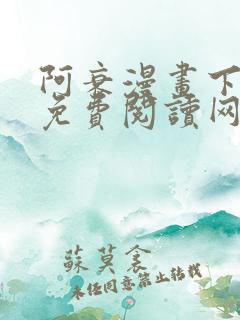 阿衰漫畫下
免費閱讀网
蘇莫衾
未经同意禁止转载